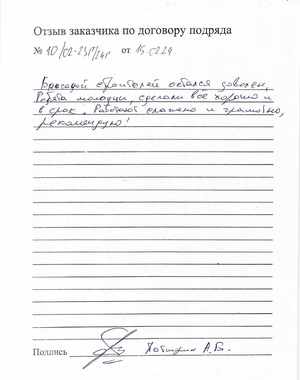 Отзыв заказчика по договору подряда
№ 10/02-23Р/ от 15.02.24
Бригадой строителей остался доволен,
Ребята молодцы, сделали всё хорошо и
в срок. Работают слажено и грамотно,
рекомендую!
Подпись А.В.